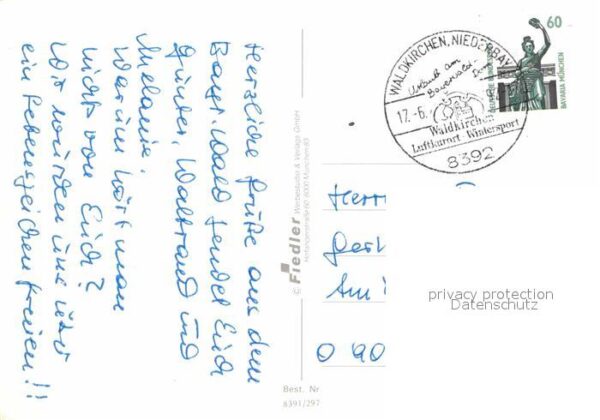 Herzliche Grüße aus dem
Bayr. Wald sendet Euch
Günter, Waltraud und
Melanie.
Warum hört man
nichts von Euch?
Wir würden uns über
ein Lebenszeichen freuen!!
© Fiedler Werbestudio & Verlags GmbH
8000 München 83
Best. Nr.
8391/297
WALDKIRCHEN, NIEDERBAY
Urlaub am
Bayerwald
17.-6.
Waldkirchen
Luftkurort - Wintersport
8392
60
DEUTSCHE BUNDESPOST
BAVARIA MÜNCHEN
Herrn
Am
O 90
privacy protection
Datenschutz